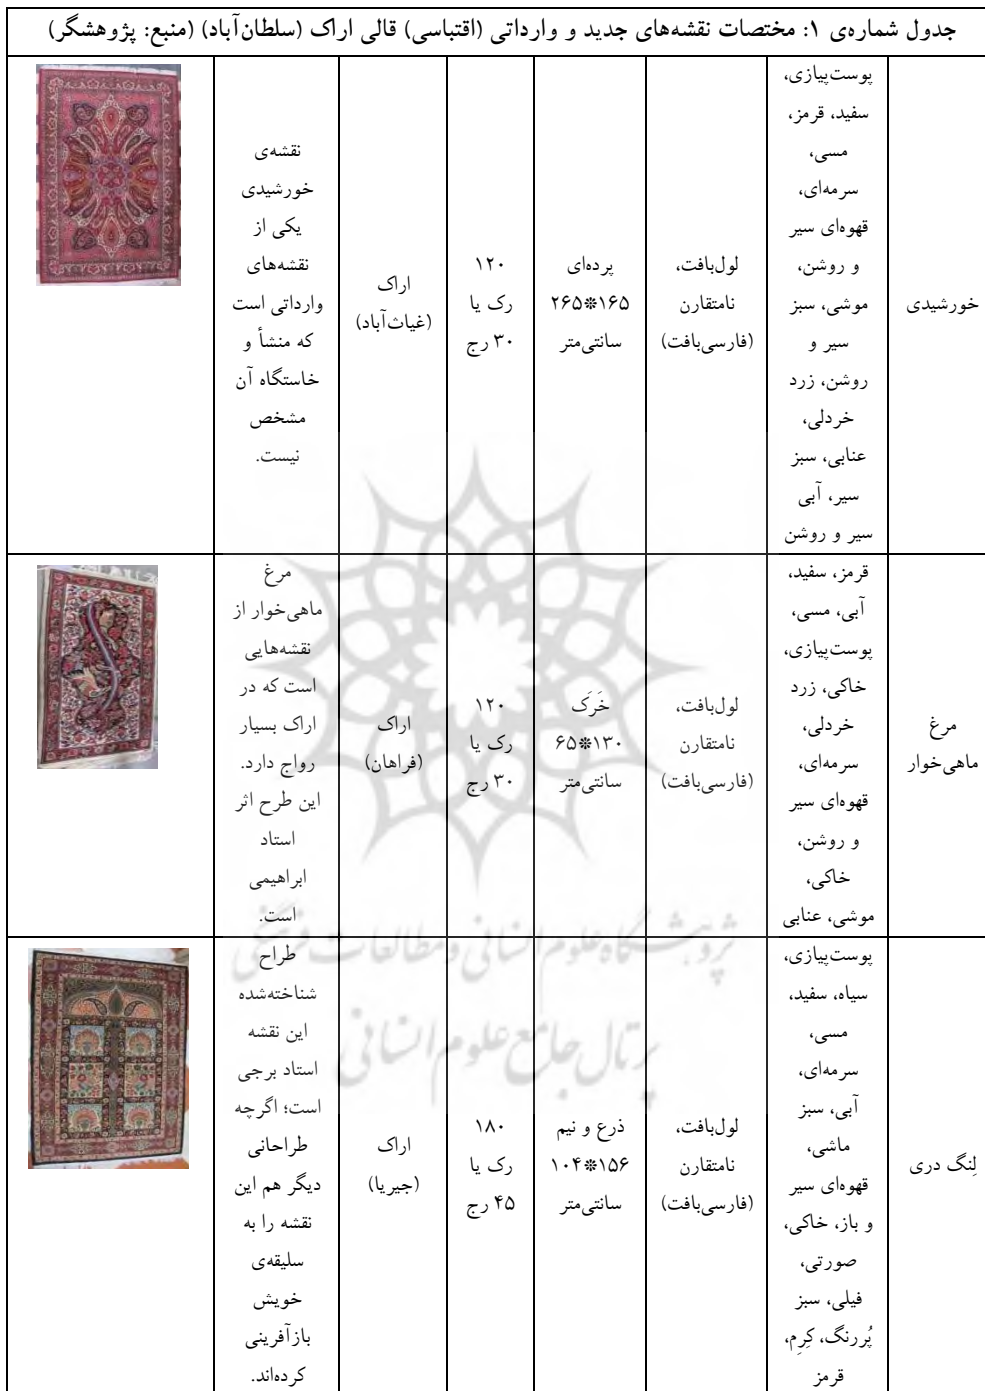 جدول شماره‌ی ۱: مختصات نقشه‌های جدید و وارداتی (اقتباسی) قالی اراک (سلطان‌آباد) (منبع: پژوهشگر)
خورشیدی
پوست‌پیازی،
سفید، قرمز،
مسی،
سرمه‌ای،
قهوه‌ای سیر
و روشن،
موشی، سبز
سیر و
روشن، زرد
خردلی،
عنابی، سبز
سیر، آبی
سیر و روشن
لول‌بافت،
نامتقارن
(فارسی‌بافت)
پرده‌ای
۱۶۵*۲۶۵
سانتی‌متر
۱۲۰
رک یا
۳۰ رج
اراک
(غیاث‌آباد)
نقشه‌ی
خورشیدی
یکی از
نقشه‌های
وارداتی است
که منشأ و
خاستگاه آن
مشخص
نیست.
مرغ
ماهی‌خوار
قرمز، سفید،
آبی، مسی،
پوست‌پیازی،
خاکی، زرد
خردلی،
سرمه‌ای،
قهوه‌ای سیر
و روشن،
خاکی،
موشی، عنابی
لول‌بافت،
نامتقارن
(فارسی‌بافت)
خَرَک
۱۳۰*۶۵
سانتی‌متر
۱۲۰
رک یا
۳۰ رج
اراک
(فراهان)
مرغ
ماهی‌خوار از
نقشه‌هایی
است که در
اراک بسیار
رواج دارد.
این طرح اثر
استاد
ابراهیمی
است.
لِنگ دری
پوست‌پیازی،
سیاه، سفید،
مسی،
سرمه‌ای،
آبی، سبز
ماشی،
قهوه‌ای سیر
و باز، خاکی،
صورتی،
فیلی، سبز
پُررنگ، کِرِم،
قرمز
لول‌بافت،
نامتقارن
(فارسی‌بافت)
ذرع و نیم
۱۵۶*۱۰۴
سانتی‌متر
۱۸۰
رک یا
۴۵ رج
اراک
(جیریا)
طراح
شناخته‌شده
این نقشه
استاد برجی
است؛ اگرچه
طراحانی
دیگر هم این
نقشه را به
سلیقه‌ی
خویش
بازآفرینی
کرده‌اند.
پژوهشگاه علوم انسانی و مطالعات فرهنگی
پرتال جامع علوم انسانی